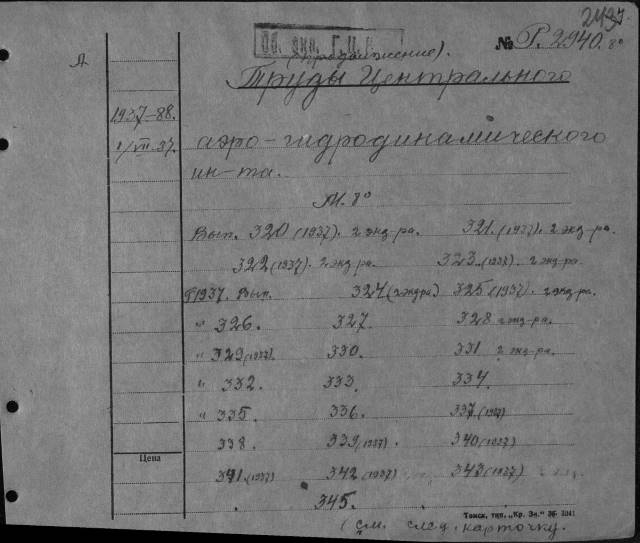 2437.
Об. экз. Г.Ц.К.
№ Р.2940. 8°
(Продолжение).
А
Труды Центрального
1937-88.
1/VII 37.
аэро-гидродинамического
ин-та.
М. 8°
Вып. 320 (1937). 2 экз-ра. 321. (1937). 2 экз-ра.
322 (1937). 2 экз-ра. 323. (1937). 2 экз-ра.
1937. Вып. 324 (2 экз-ра) 325 (1937). 2 экз-ра.
" 326. 327. 328 2 экз-ра.
" 329 (1937). 330. 331 2 экз-ра.
" 332. 333. 334.
" 335. 336. 337 (1937)
338. 339 (1937). 340 (1937)
Цена
341. (1937) 342 (1937) 343 (1937)
345.
Томск, тип. „Кр. Зн." 36. 3041
(см. след. карточку.